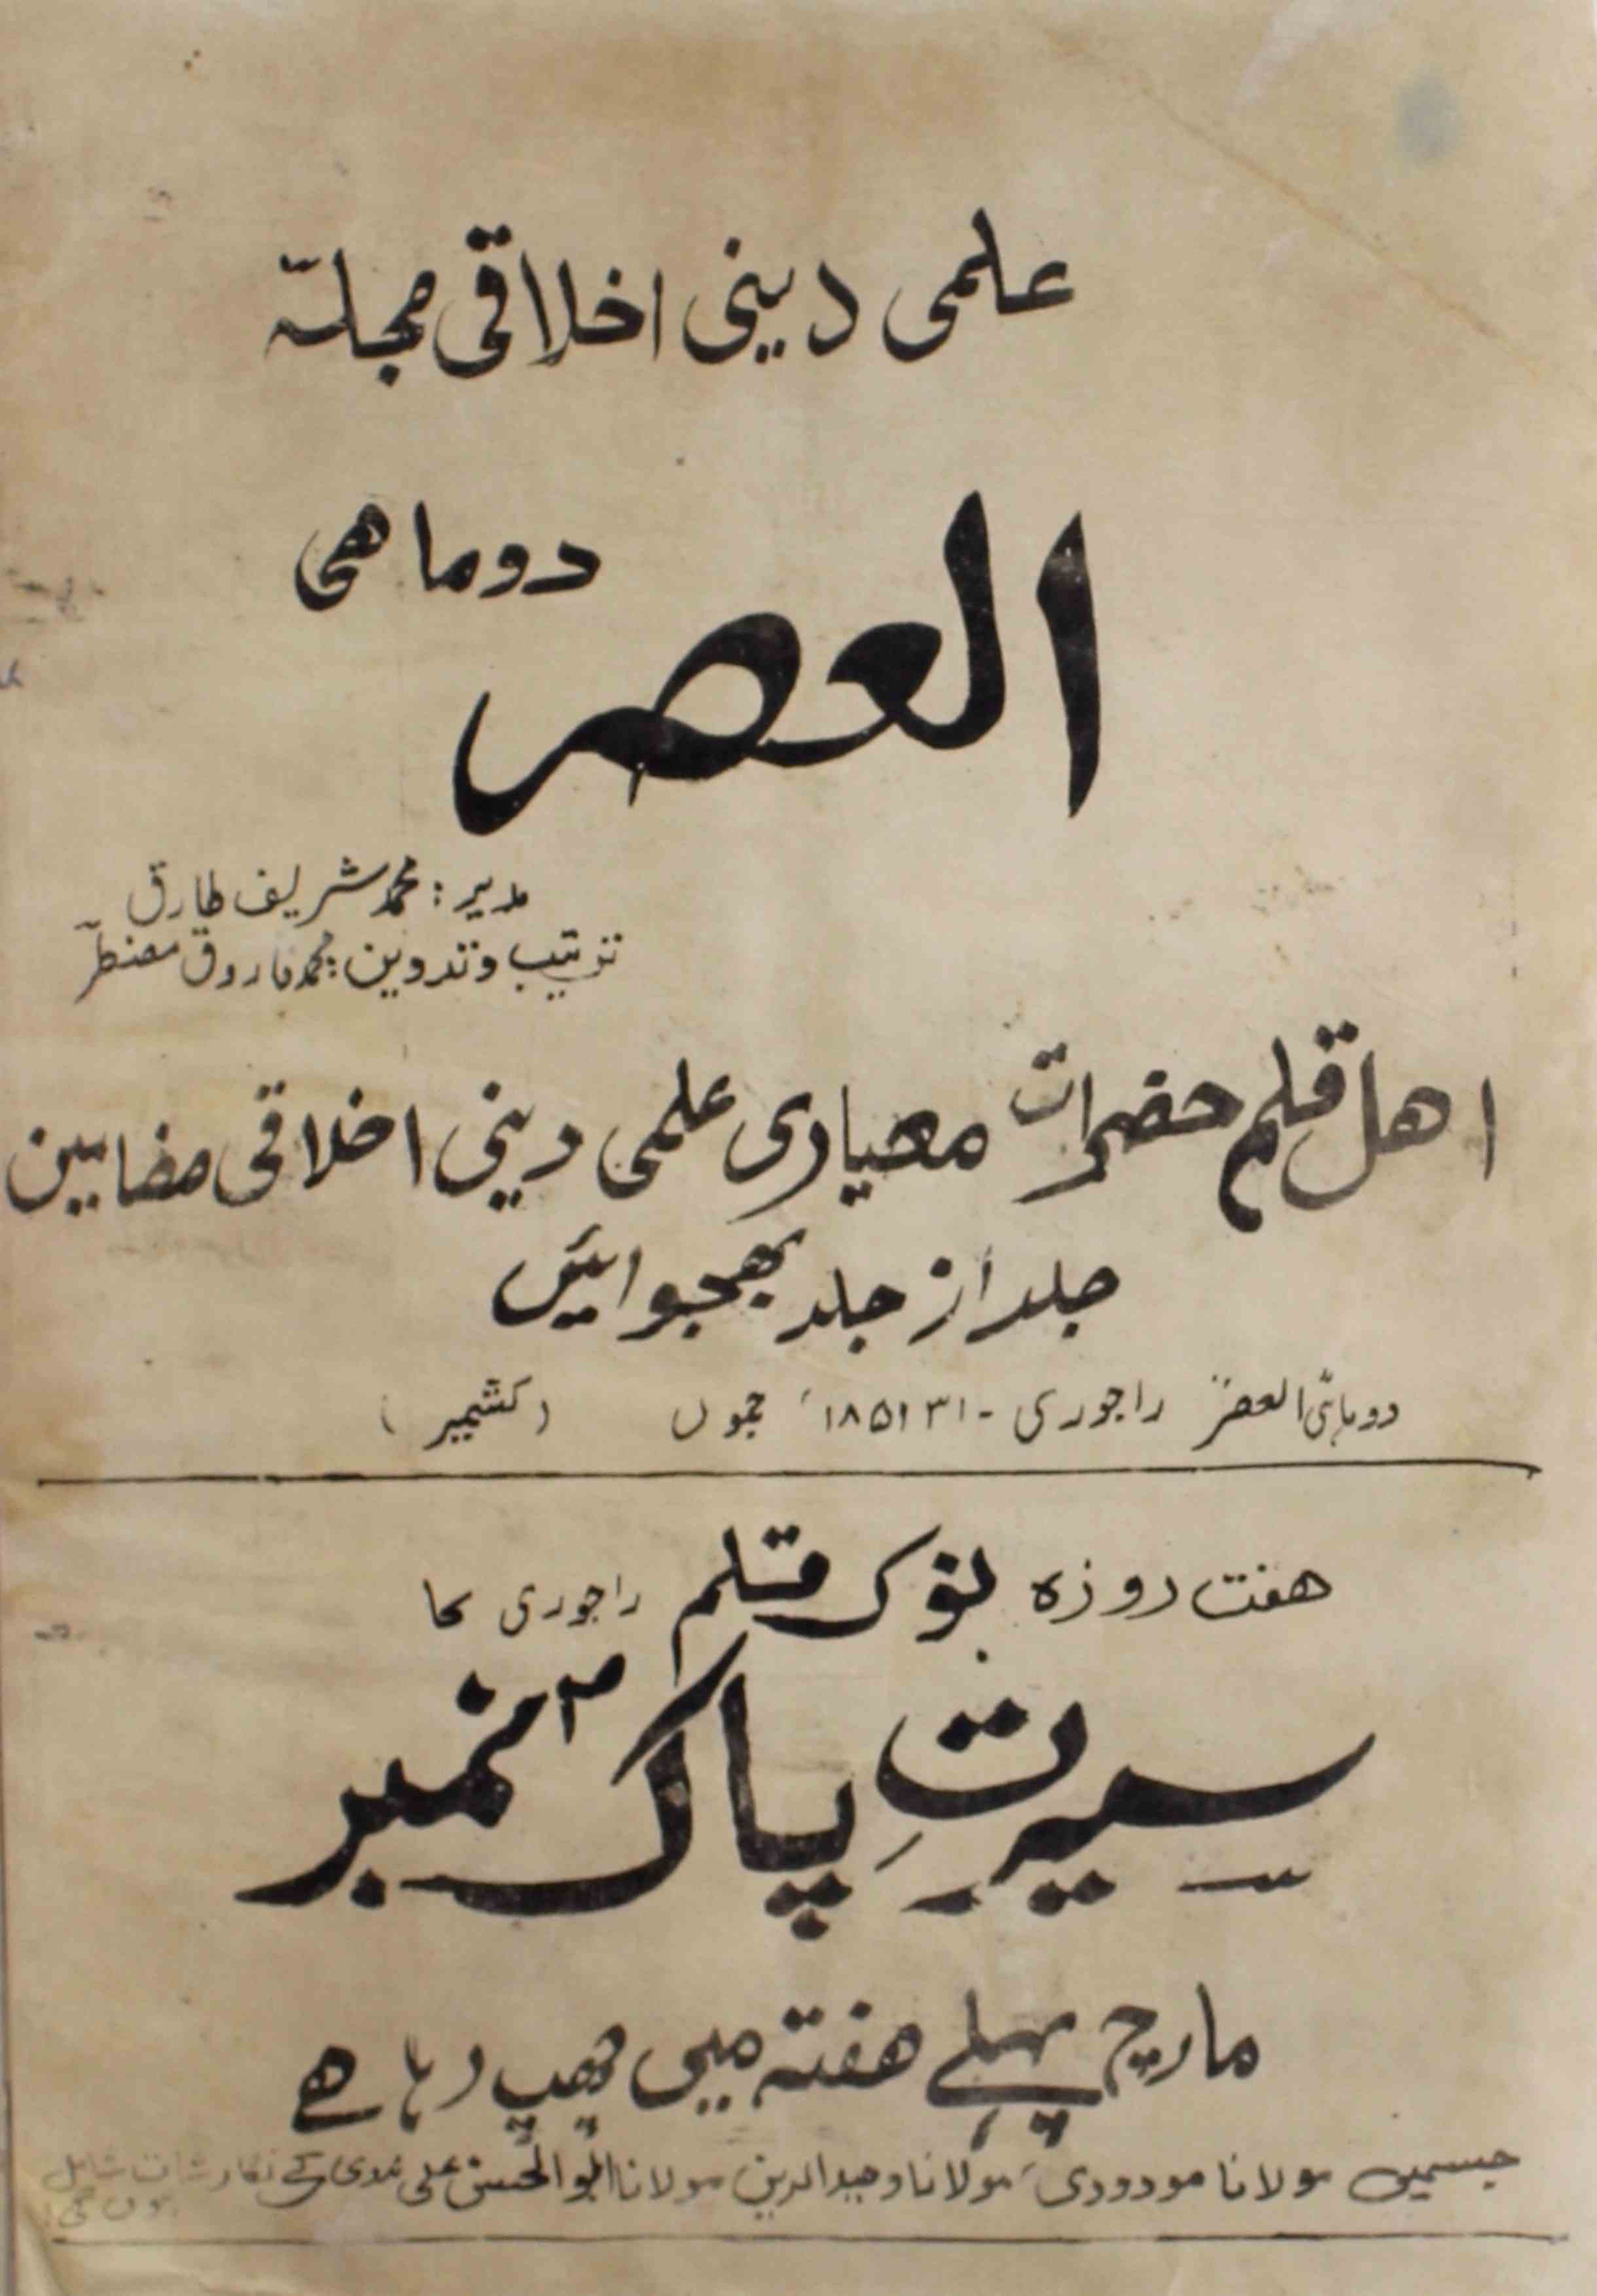 علمی دینی اخلاقی مجلّہ
دوماھی
العصر
مدیر: محمد شریف طارق
ترتیب و تدوین: محمد فاروق مضطرؔ
اھل قلم حضرات معیاری علمی دینی اخلاقی مضامین
جلد از جلد بھجوائیں
دوماہی العصر راجوری - ۱۸۵۱۳۱ جموں (کشمیر)
ھفت روزہ نوک قلم راجوری کا
سیرتِ پاکؐ نمبر
مارچ پہلے ھفتہ میں چھپ رہا ھے
جسمیں مولانا مودودی، مولانا وحیدالدین مولانا ابوالحسن علی ندوی کے نگارشات شامل
ہوں گی!